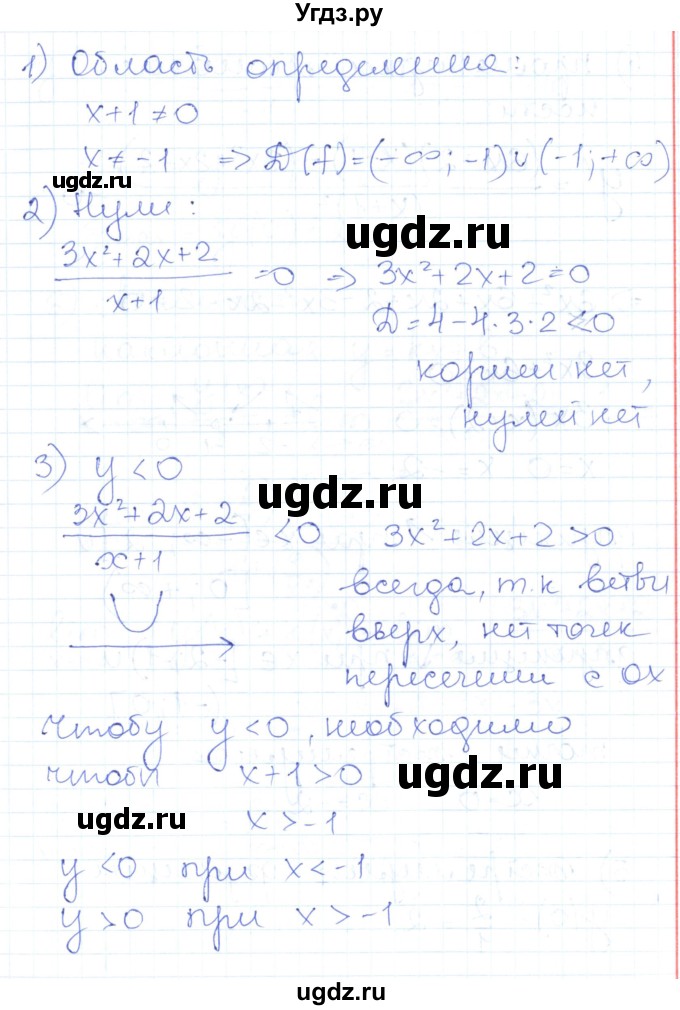 Угдз.ру
1) Область определения:
x+1≠0
x≠-1 => D(f)=(-∞;-1)∪(-1;+∞)
ugdz.ru
2) Нули:
ugdz.ru
(3x²+2x+2)/(x+1) =0 => 3x²+2x+2=0
D=4-4·3·2<0
корней нет,
нулей нет
3) y<0
ugdz.ru
(3x²+2x+2)/(x+1) <0 3x²+2x+2>0
всегда, т.к ветви
вверх, нет точек
пересечения с OX
Чтобы y<0, необходимо
чтобы x+1>0
ugdz.ru
ugdz.ru
x>-1
y<0 при x<-1
y>0 при x>-1
ugdz.ru